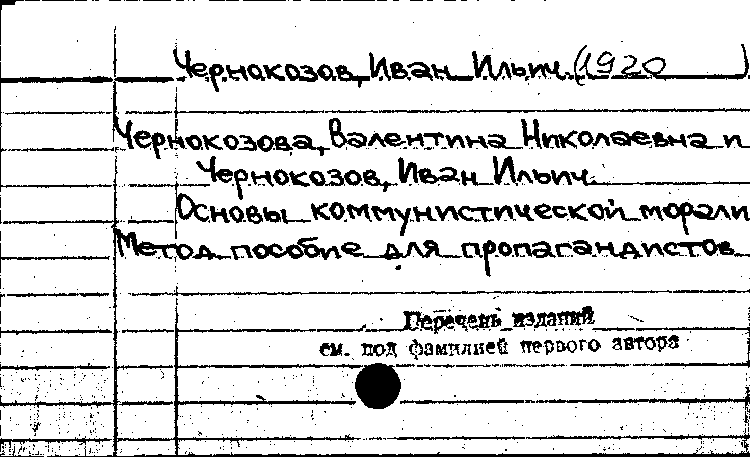 Чернокозов, Иван Ильич (1920 )
Чернокозова, Валентина Николаевна и
Чернокозов, Иван Ильич.
Основы коммунистической морали
Метод. пособие для пропагандистов
Перечень изданий
см. под фамилией первого автора